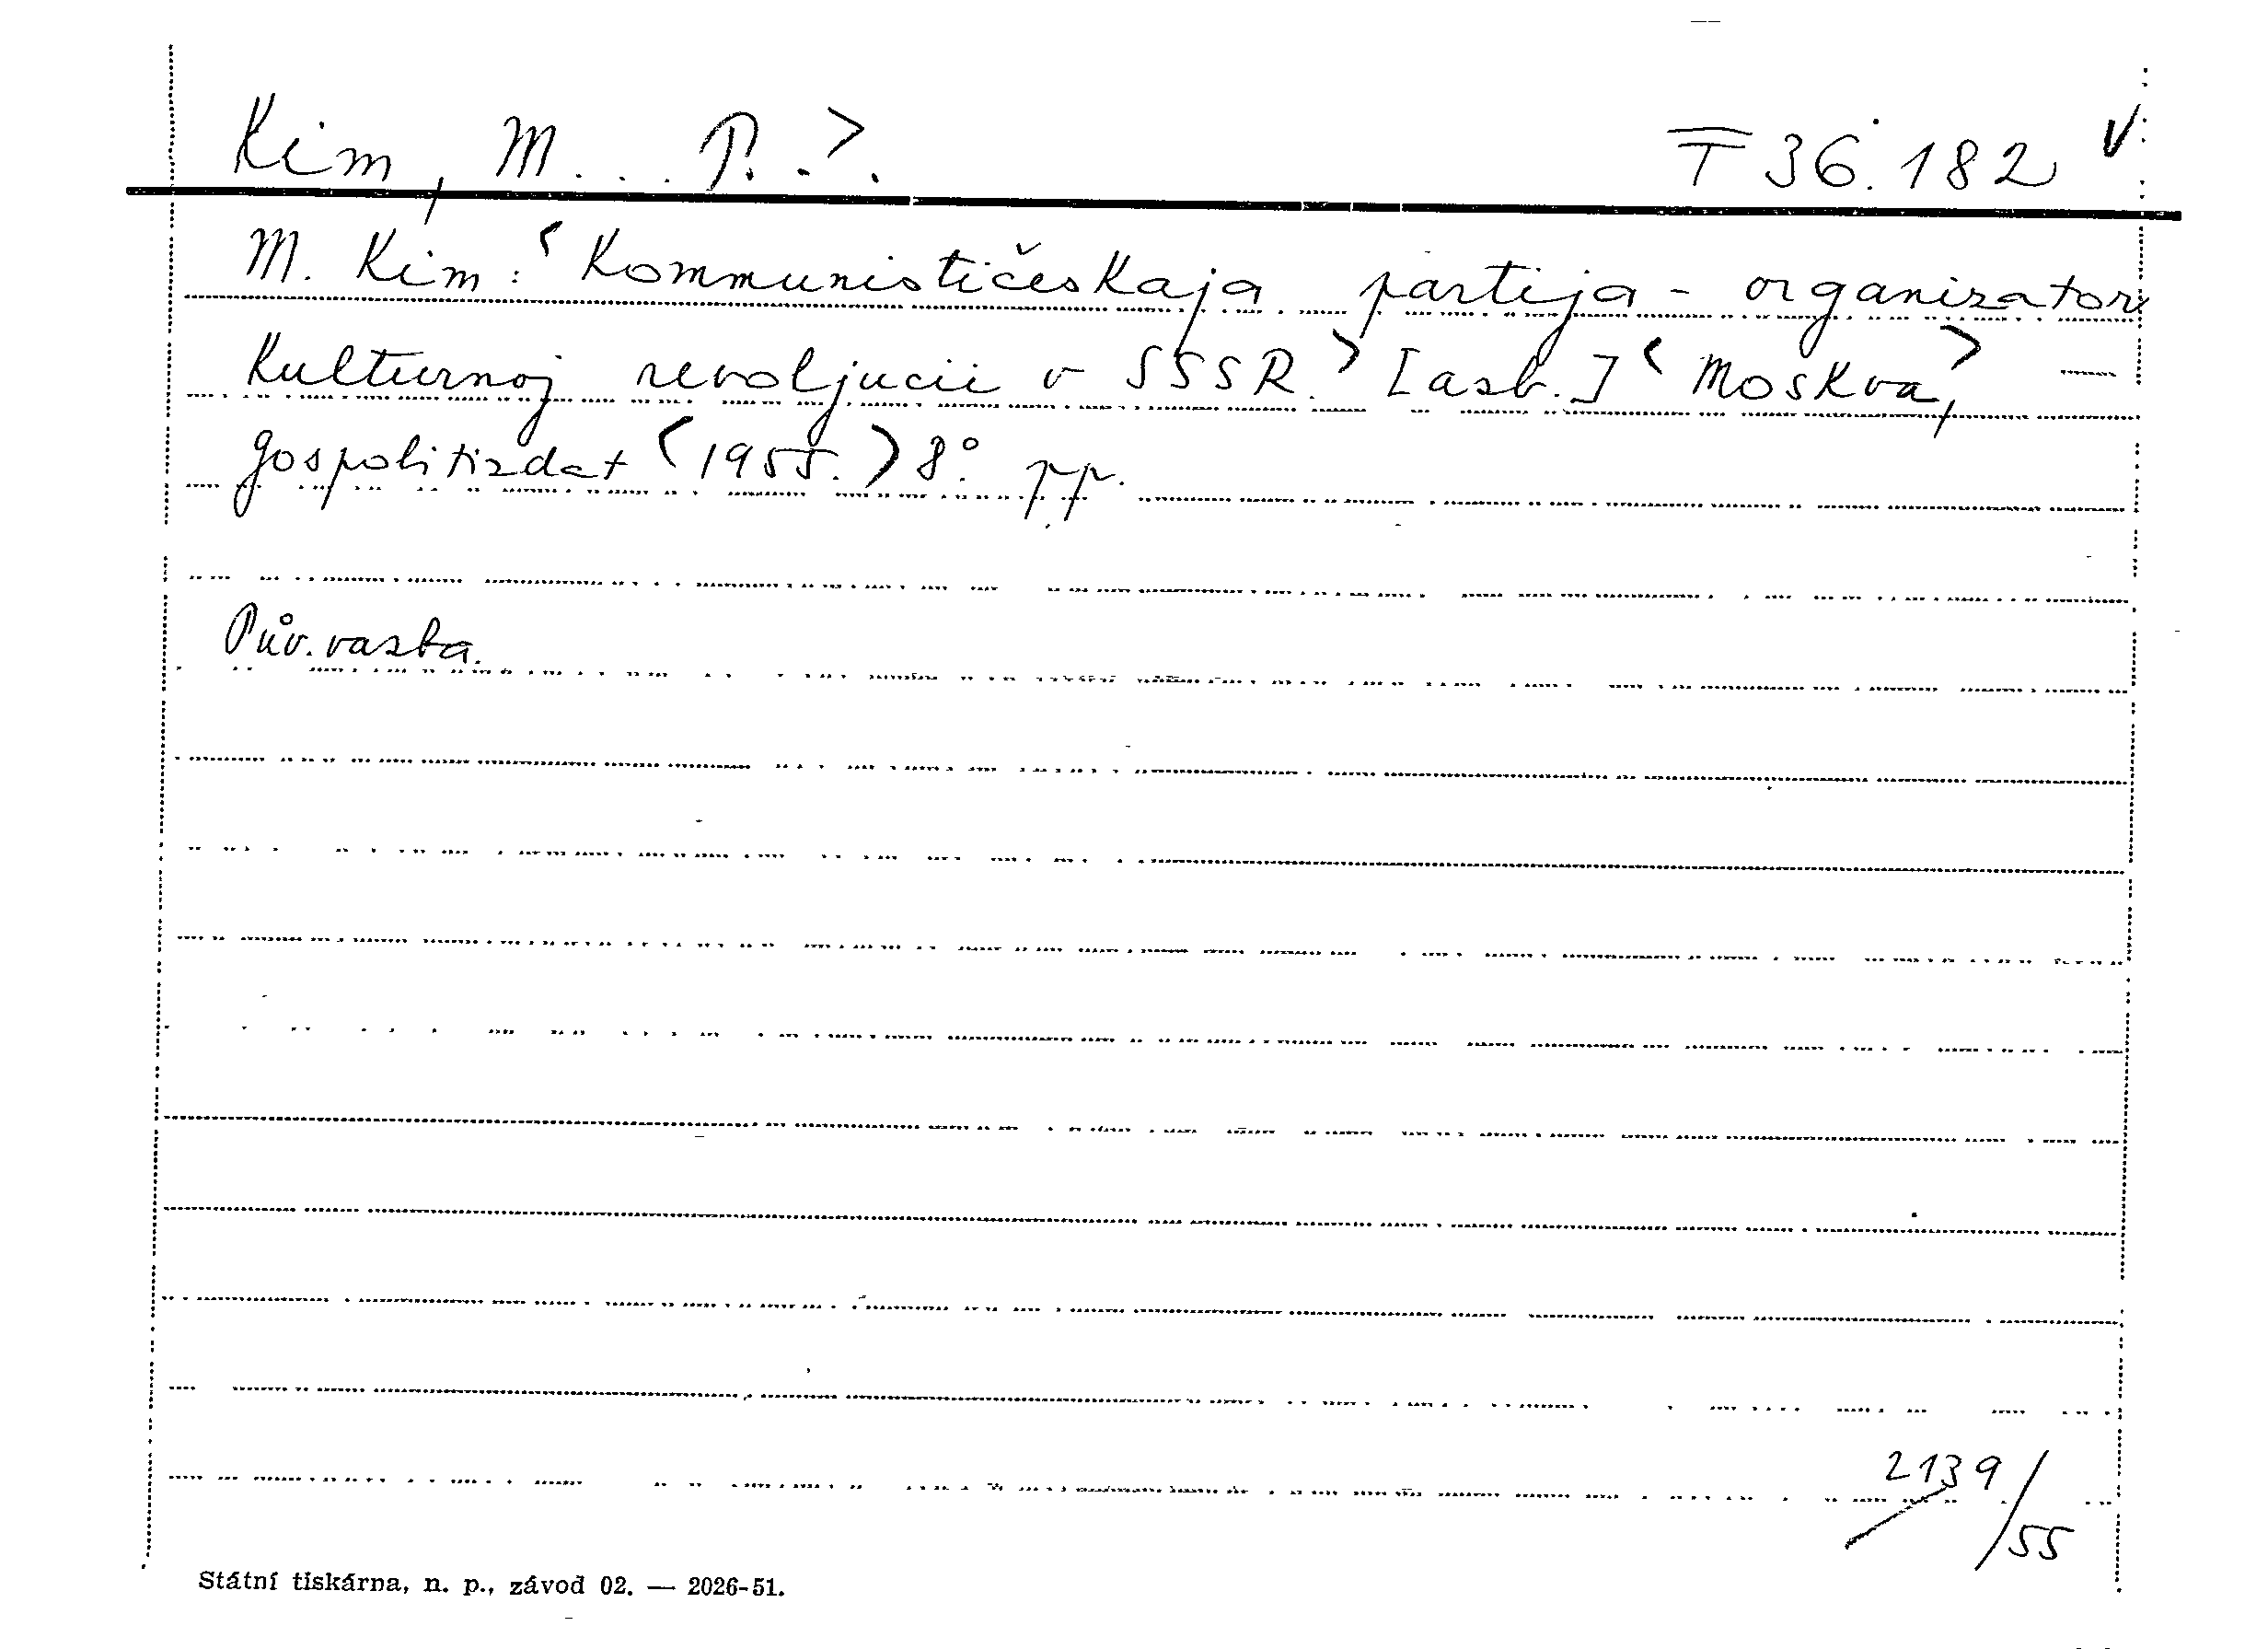 Kim, M... P. >.
T 36.182 V
M. Kim: < Kommunističeskaja partija - organizator
kulturnoj revoljucii v SSSR. > [azb.] < Moskva, > —
gospolitizdat < 1955. > 8° pp.
Pův. vazba.
2139/55
Státní tiskárna, n. p., závod 02. — 2026-51.